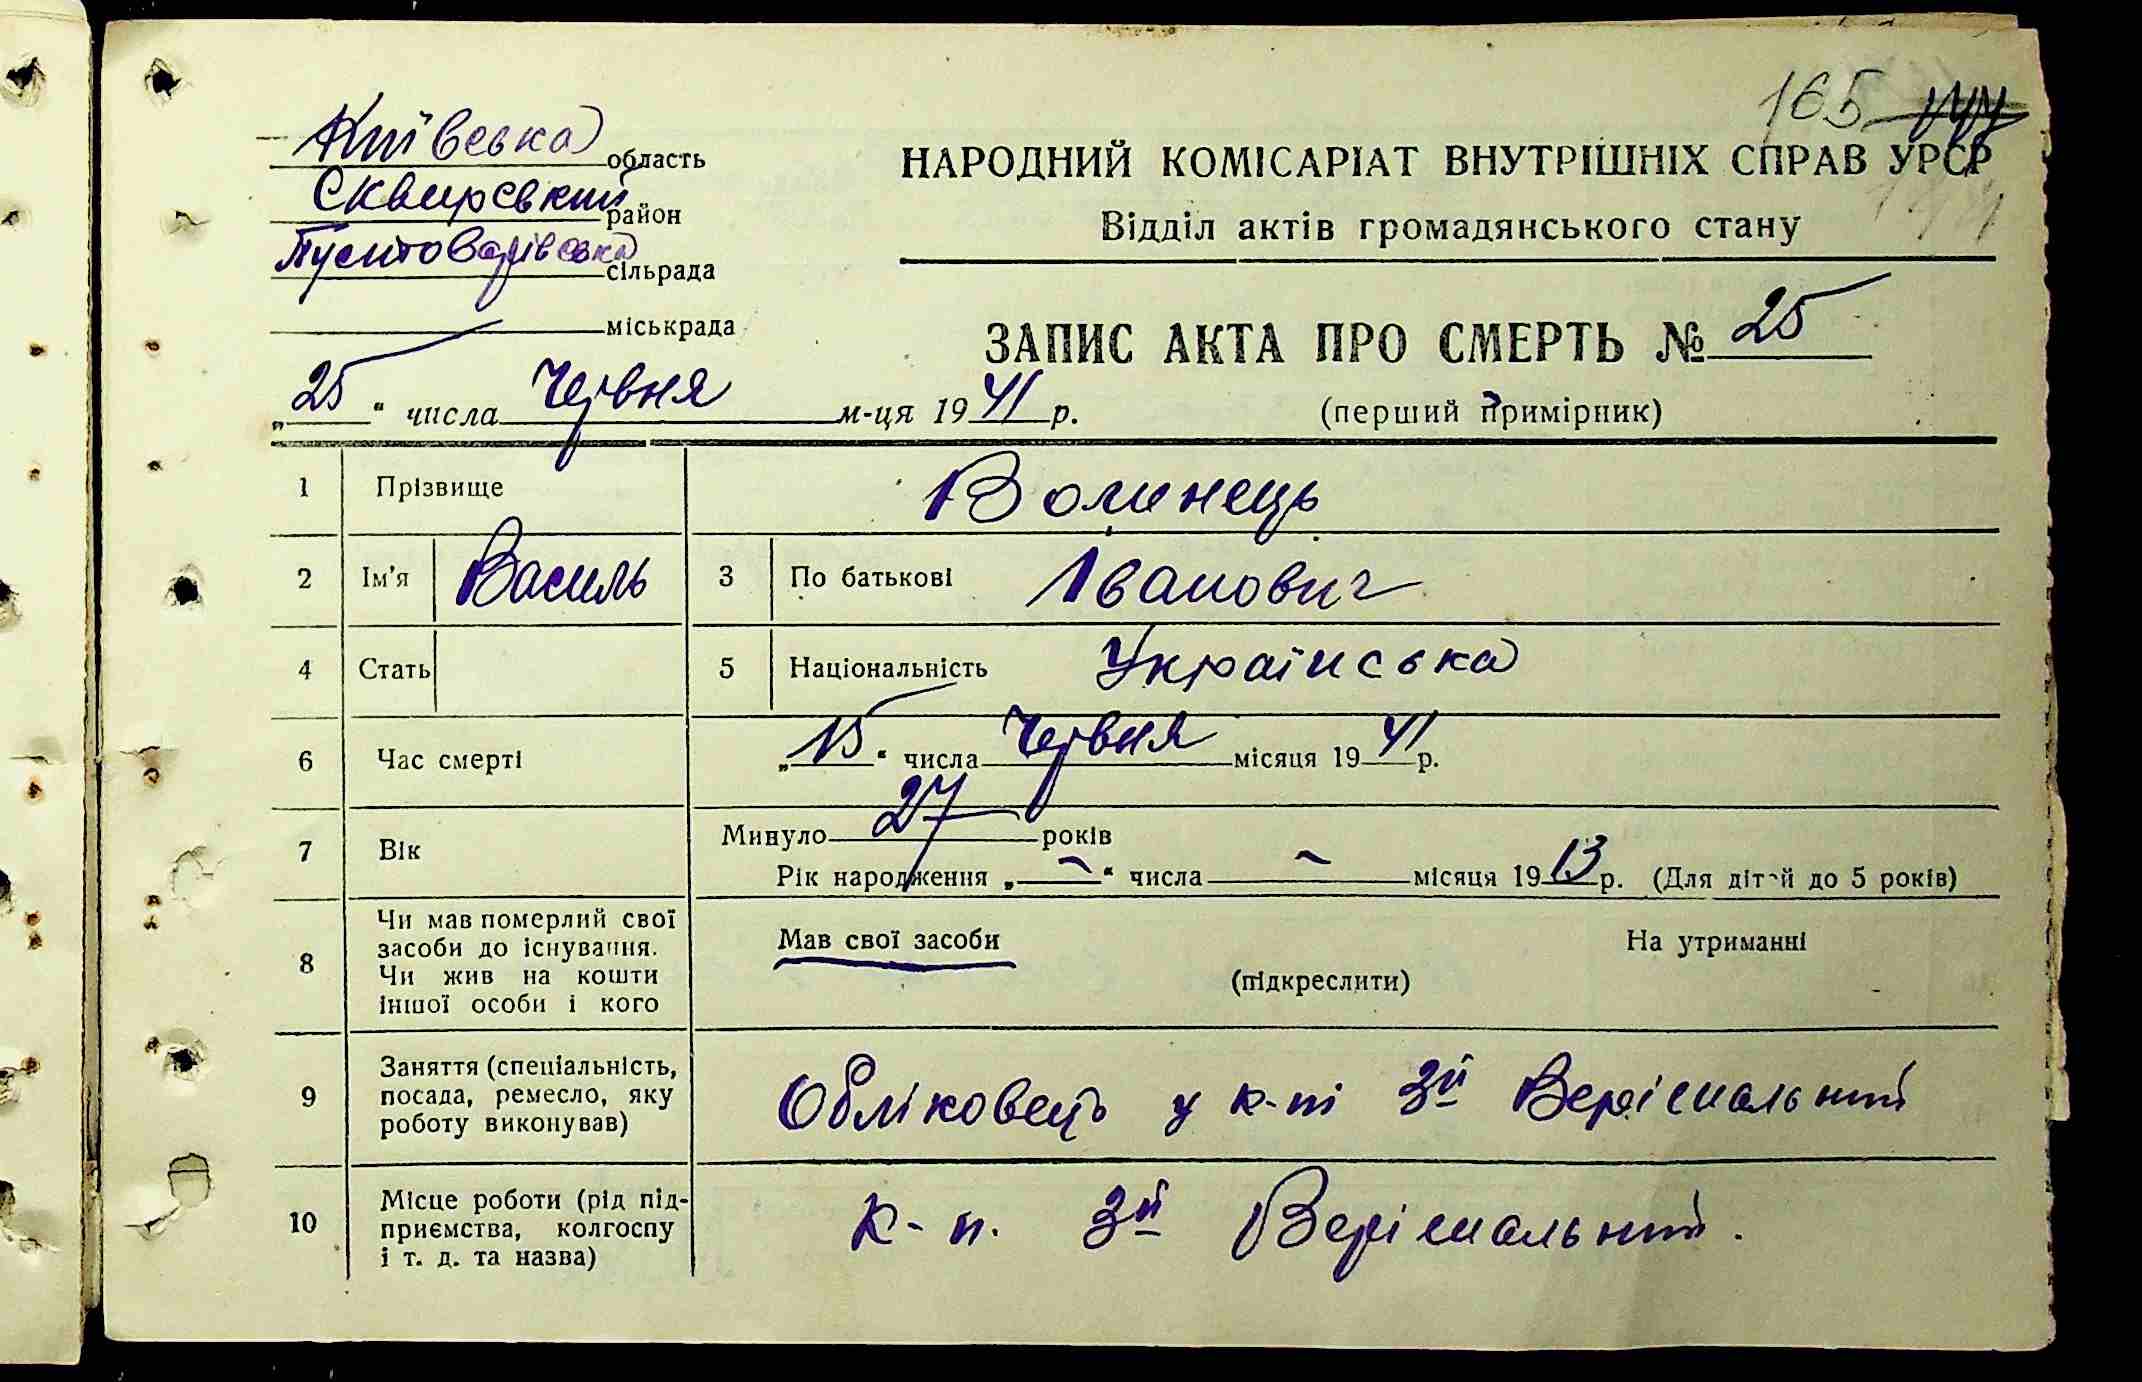 165
Київська область
Сквирський район
Пустоварівська сільрада
міськрада
НАРОДНИЙ КОМІСАРІАТ ВНУТРІШНІХ СПРАВ УРСР
Відділ актів громадянського стану
ЗАПИС АКТА ПРО СМЕРТЬ № 25
(перший примірник)
„25“ числа Червня м-ця 1941 р.
1 Прізвище Волинець
2 Ім'я Василь 3 По батькові Іванович
4 Стать 5 Національність Українська
6 Час смерті „15“ числа Червня місяця 1941 р.
7 Вік Минуло 27 років
Рік народження „-“ числа - місяця 1913 р. (Для дітей до 5 років)
8 Чи мав померлий свої
засоби до існування.
Чи жив на кошти
іншої особи і кого
Мав свої засоби На утриманні
(підкреслити)
9 Заняття (спеціальність,
посада, ремесло, яку
роботу виконував)
Обліковець у к-пі 3й Верішальний
10 Місце роботи (рід під-
приємства, колгоспу
і т. д. та назва)
к-п. 3й Верішальний.